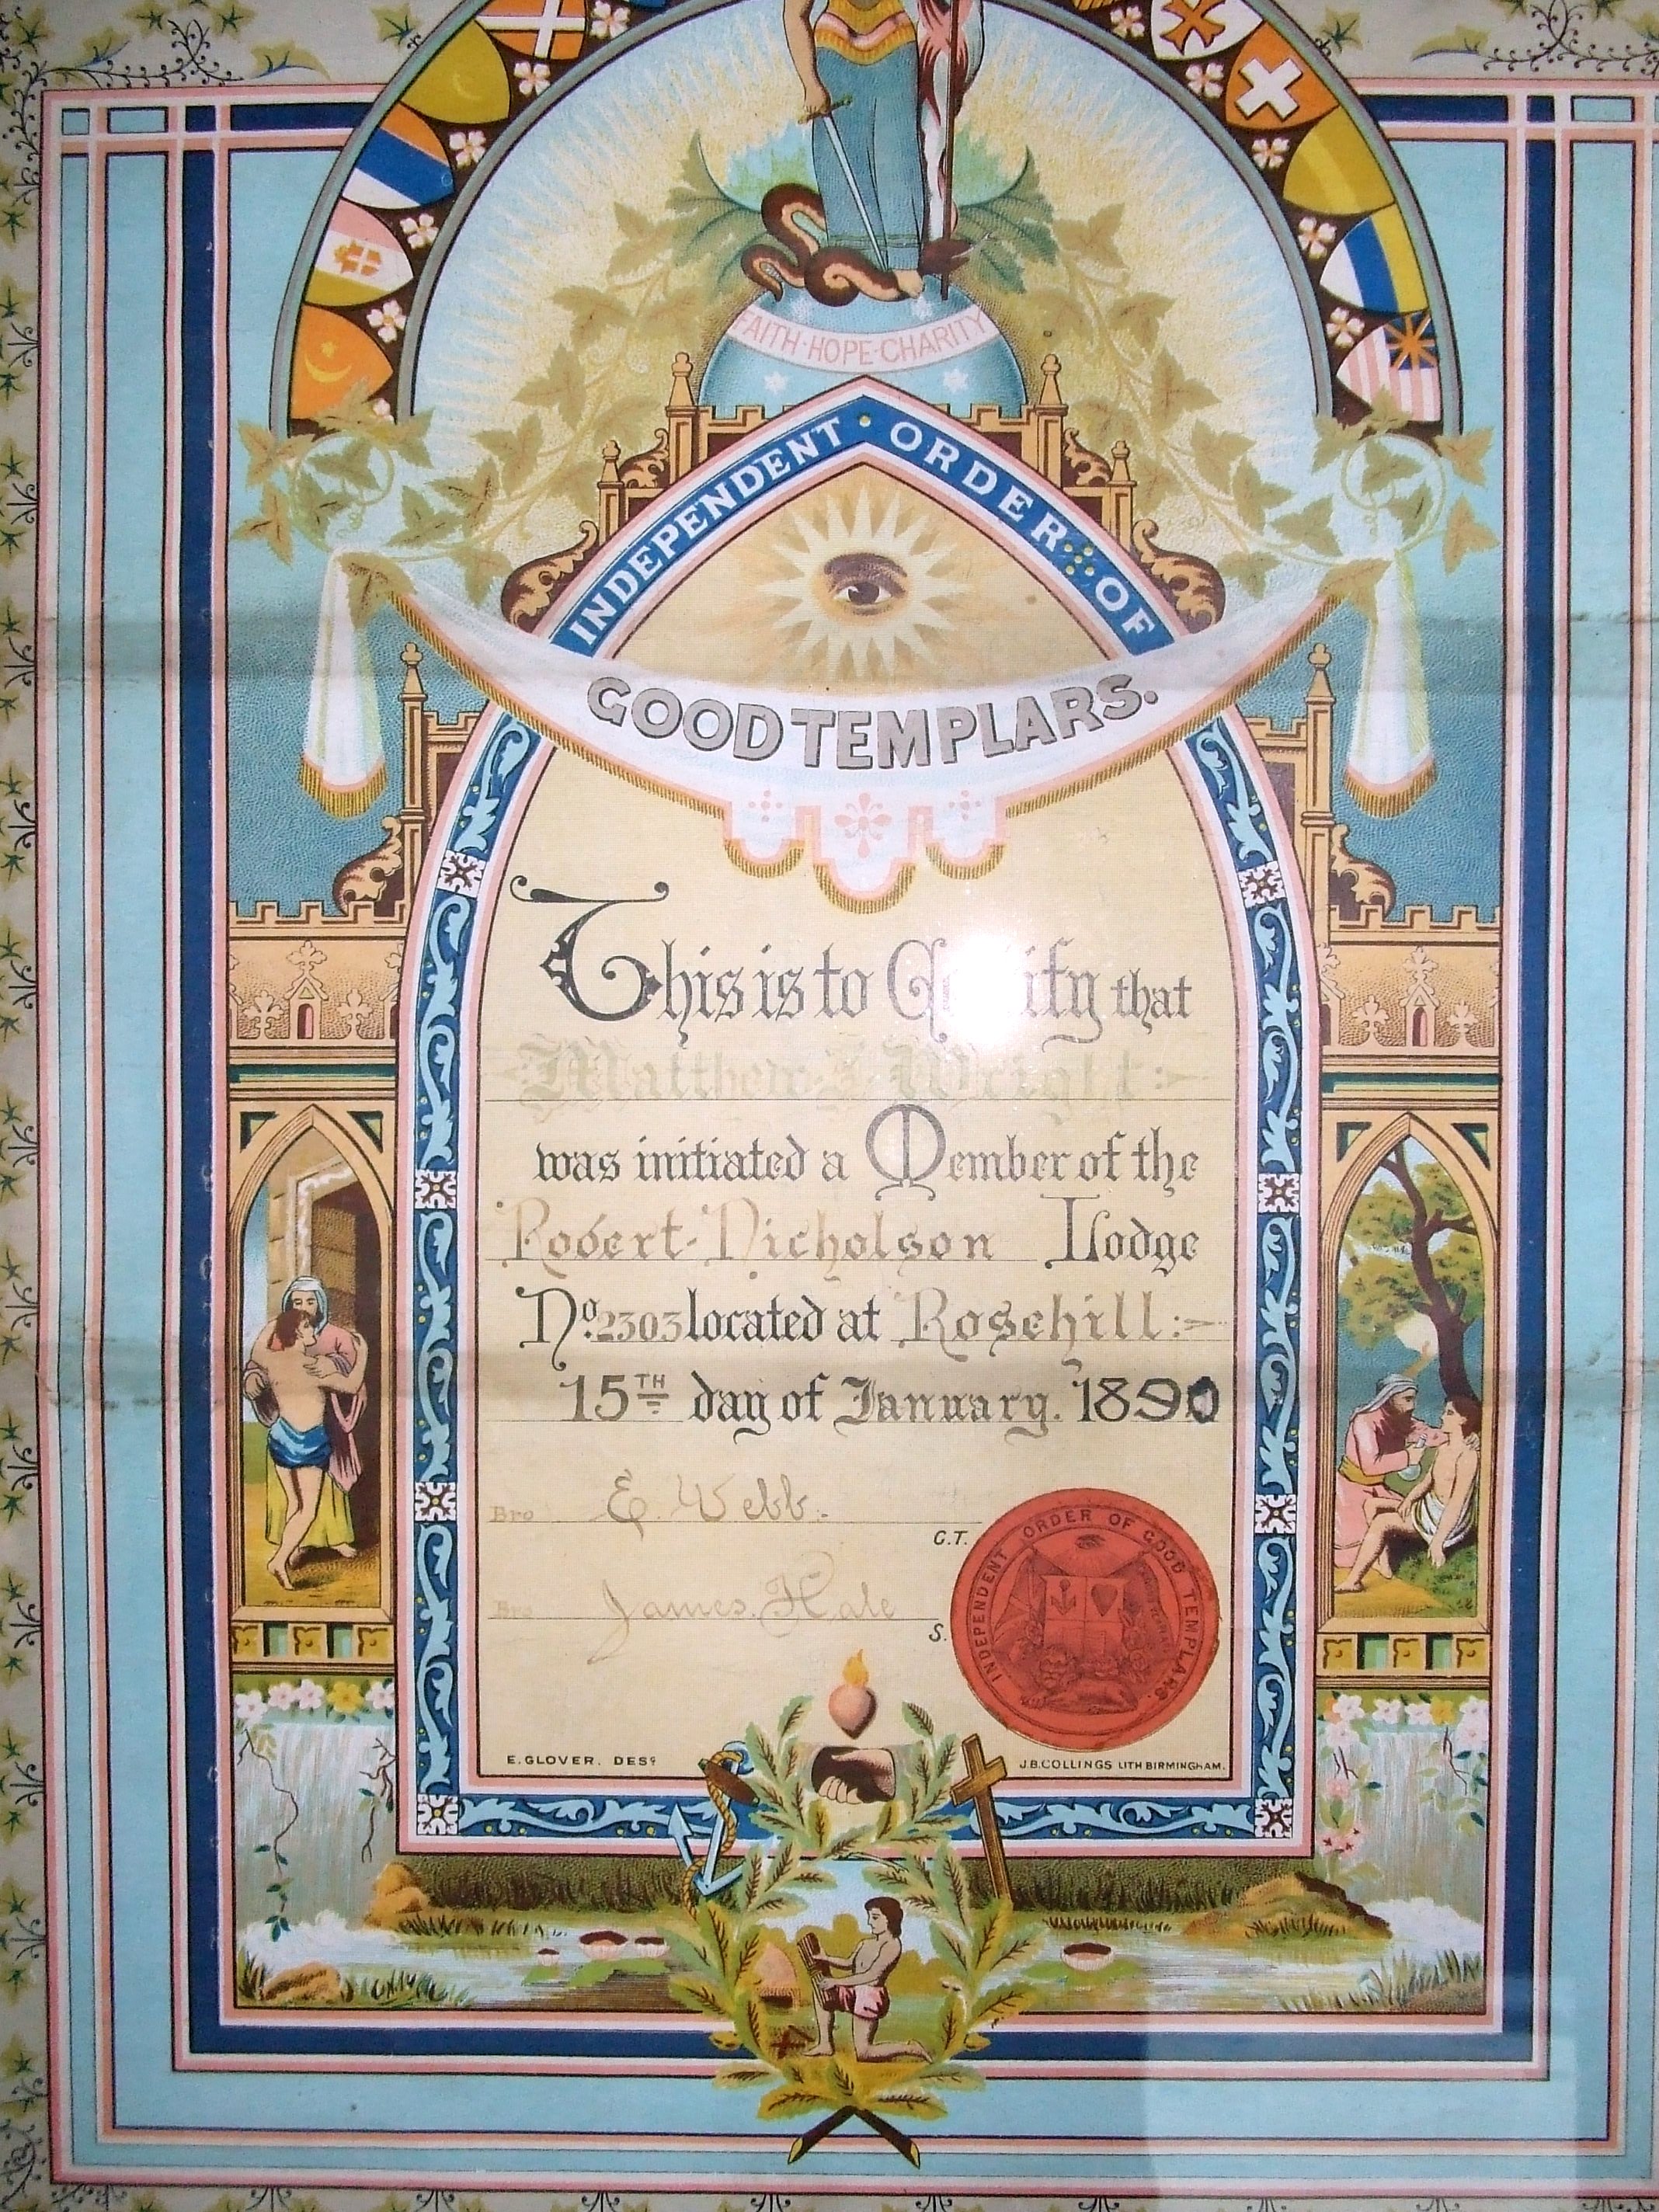 FAITH·HOPE·CHARITY
INDEPENDENT · ORDER OF
GOOD TEMPLARS.
This is to Certify that
Matthew Wright:-
was initiated a Member of the
Robert Nicholson Lodge
No. 2303 located at Rosehill:-
15TH day of January. 1890
Bro E. Webb.
C.T.
Bro James. Hale
S.
INDEPENDENT ORDER OF GOOD TEMPLARS.
E. GLOVER. DESR
J.B. COLLINGS LITH BIRMINGHAM.